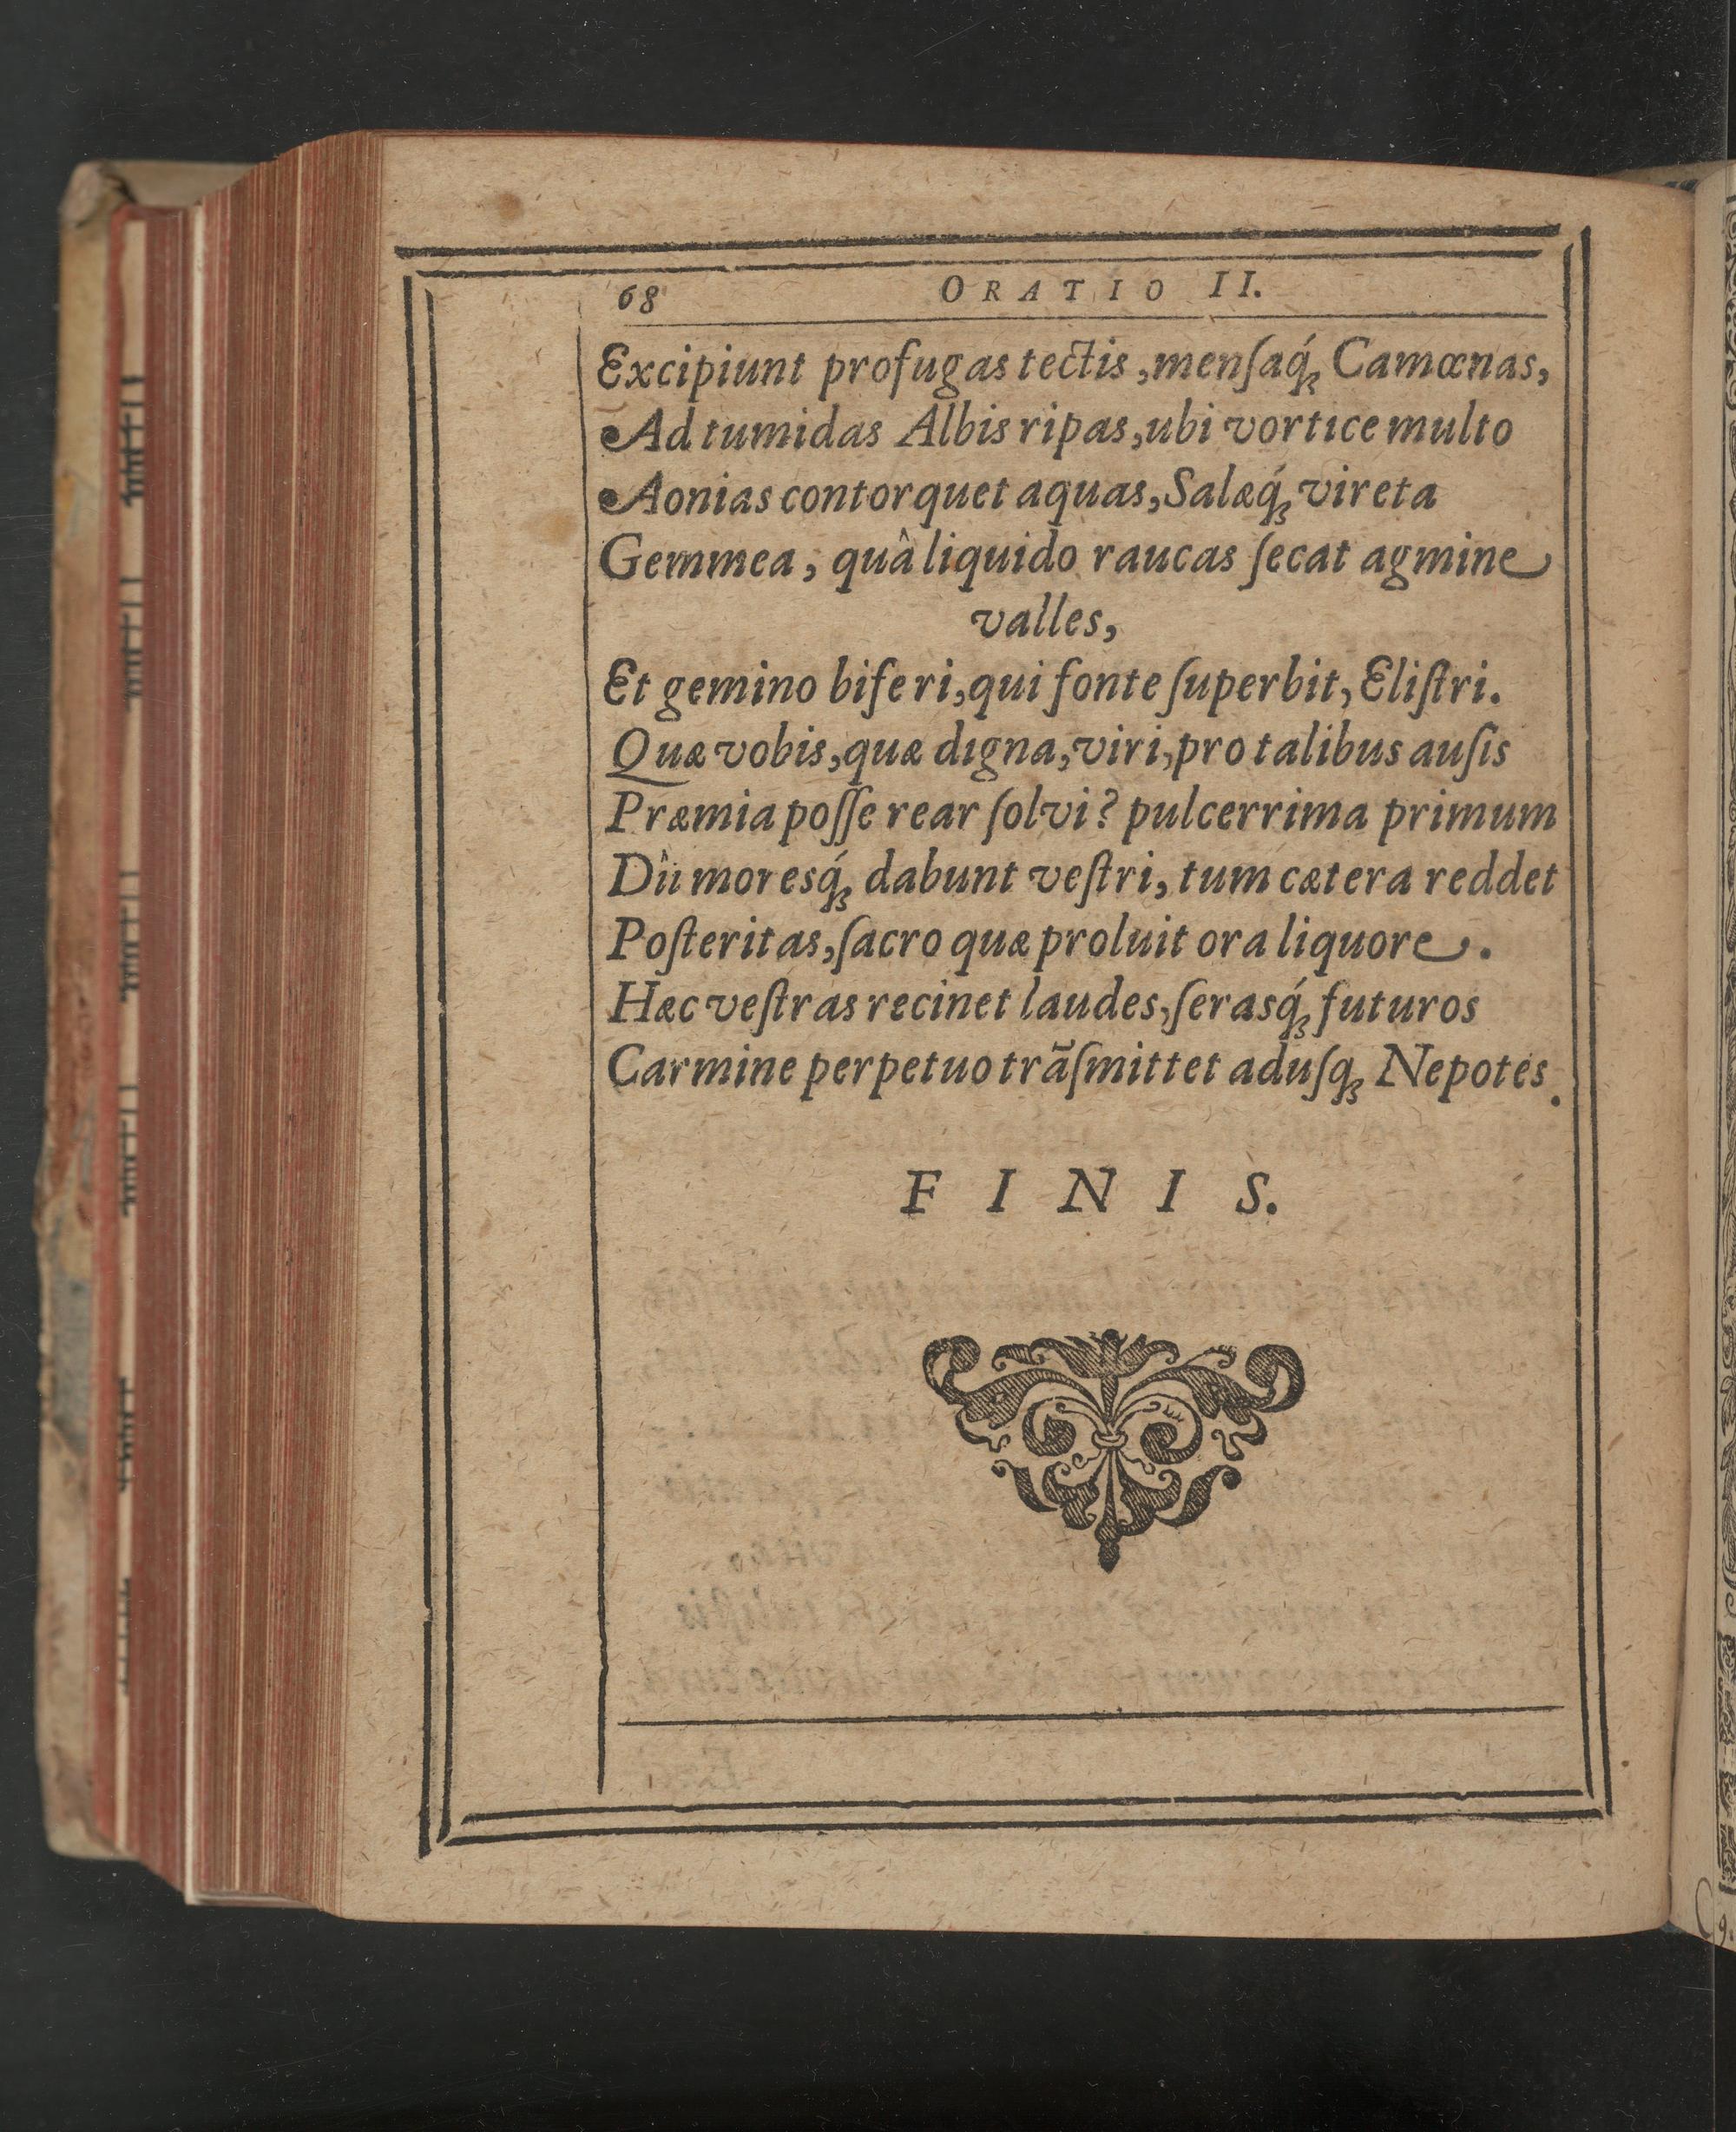 68 ORATIO II.
Excipiunt profugas tectis, menſaq́ꝫ Camœnas,
Ad tumidas Albis ripas, ubi vortice multo
Aonias contorquet aquas, Salæq́ꝫ vireta
Gemmea, quâ liquido raucas ſecat agmine
valles,
Et gemino biferi, qui fonte ſuperbit, Eliſtri.
Quæ vobis, quæ digna, viri, pro talibus auſis
Præmia poſſe rear ſolvi? pulcerrima primum
Dîi moresq́ꝫ dabunt veſtri, tum cætera reddet
Poſteritas, ſacro quæ proluit ora liquore.
Hæc veſtras recinet laudes, ſerasq́ꝫ futuros
Carmine perpetuo trãſmittet aduſqꝫ Nepotes.
FINIS.